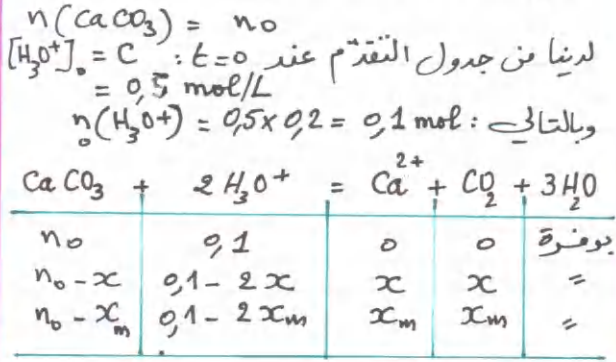 n(CaCO₃) = n₀
لدينا من جدول التقدّم عند t=0 : [H₃O⁺]₀ = C
= 0,5 mol/L
وبالتالي : n₀(H₃O⁺) = 0,5 x 0,2 = 0,1 mol
CaCO₃ + 2 H₃O⁺ = Ca²⁺ + CO₂ + 3H₂O
n₀ 0,1 0 0 بوفرة
n₀ - x 0,1 - 2x x x =
n₀ - xₘ 0,1 - 2xₘ xₘ xₘ =